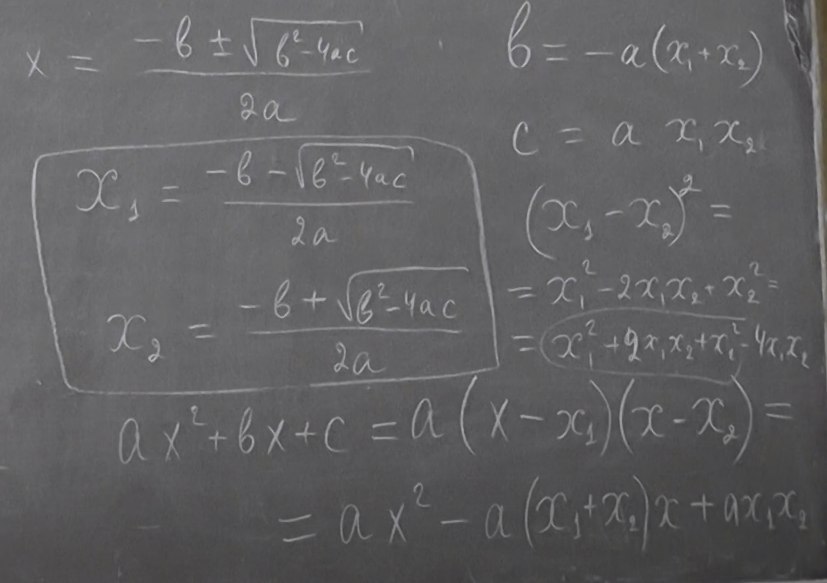 x = (-b ± √(b² - 4ac)) / 2a
x₁ = (-b - √(b² - 4ac)) / 2a
x₂ = (-b + √(b² - 4ac)) / 2a
b = -a(x₁ + x₂)
c = a x₁ x₂
(x₁ - x₂)² =
= x₁² - 2x₁x₂ + x₂² =
= x₁² + 2x₁x₂ + x₁² - 4x₁x₂
ax² + bx + c = a(x - x₁)(x - x₂) =
= ax² - a(x₁ + x₂)x + ax₁x₂